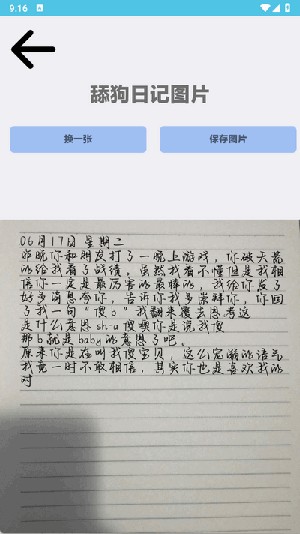 9.16
舔狗日记图片
换一张
保存图片
06月17日 星期二
昨晚你和朋友打了一晚上游戏，你破天荒
的给我看了战绩，虽然我看不懂但是我相
信你一定是最厉害的最棒的，我给你发了
好多消息夸你，告诉你我多崇拜你，你回
了我一句“傻b”我翻来覆去思考这
是什么意思sha傻噢你是说我傻
那b就是baby的意思了吧。
原来你是在叫我傻宝贝，这么宠溺的语气
我竟一时不敢相信，其实你也是喜欢我的
对